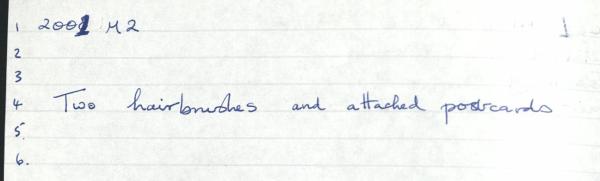 1 2001 M2
2
3
4 Two hairbrushes and attached postcards
5.
6.